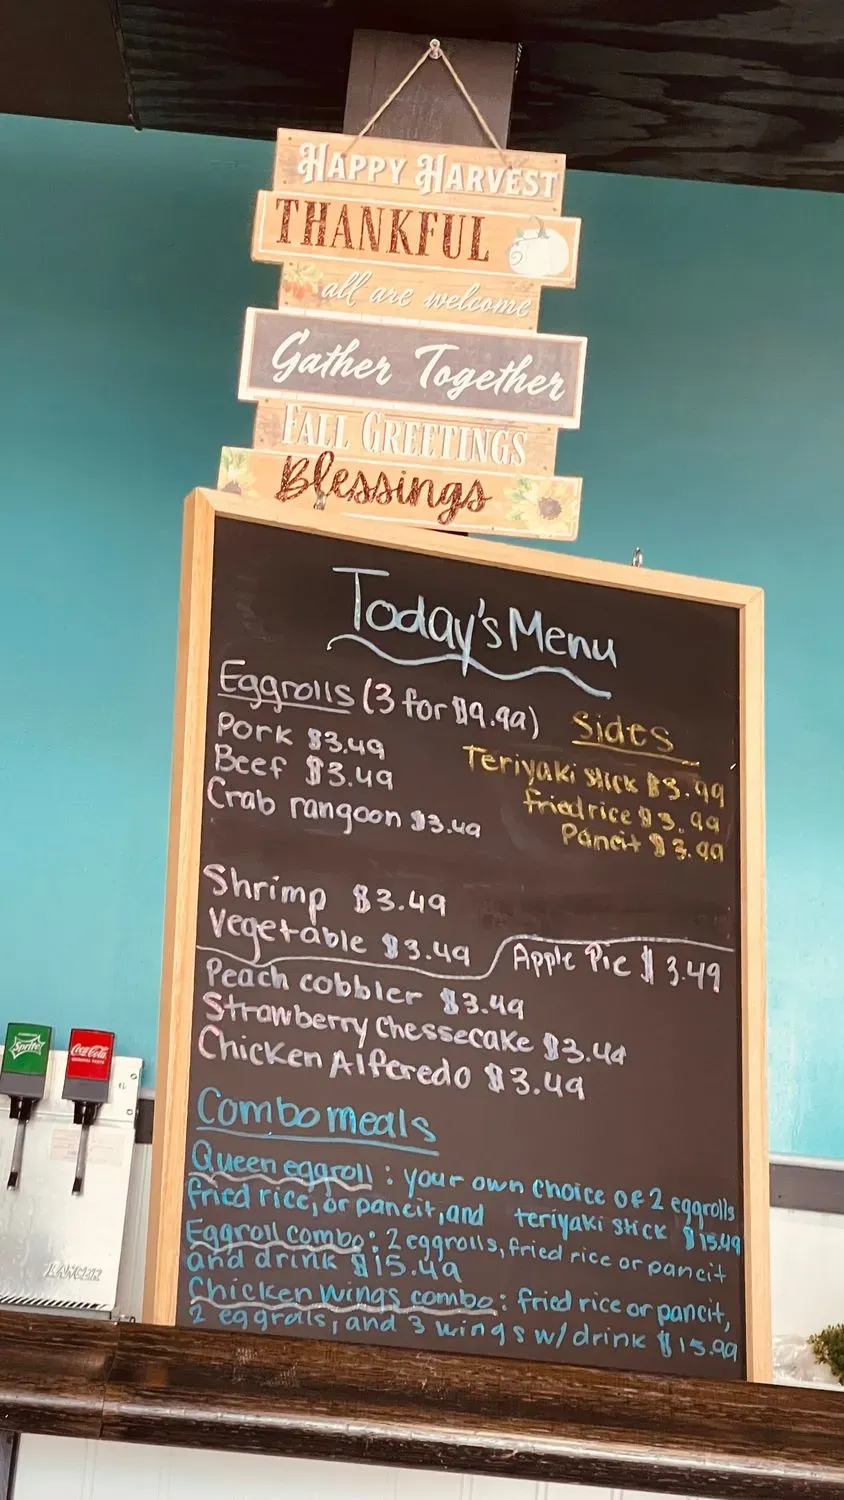 HAPPY HARVEST
THANKFUL
all are welcome
Gather Together
FALL GREETINGS
Blessings
Today's Menu
Eggrolls (3 for $9.99)
Pork $3.49
Beef $3.49
Crab rangoon $3.49
Sides
Teriyaki stick $3.99
fried rice $3.99
Pancit $3.99
Shrimp $3.49
Vegetable $3.49
Apple Pie $3.49
Peach cobbler $3.49
Strawberry chessecake $3.49
Chicken Alferedo $3.49
Combo meals
Queen eggroll: your own choice of 2 eggrolls
fried rice, or pancit, and teriyaki stick $15.49
Eggroll combo: 2 eggrolls, fried rice or pancit
and drink $15.49
Chicken wings combo: fried rice or pancit,
2 eggrolls, and 3 wings w/ drink $15.99
Sprite
Coca-Cola
LANCER